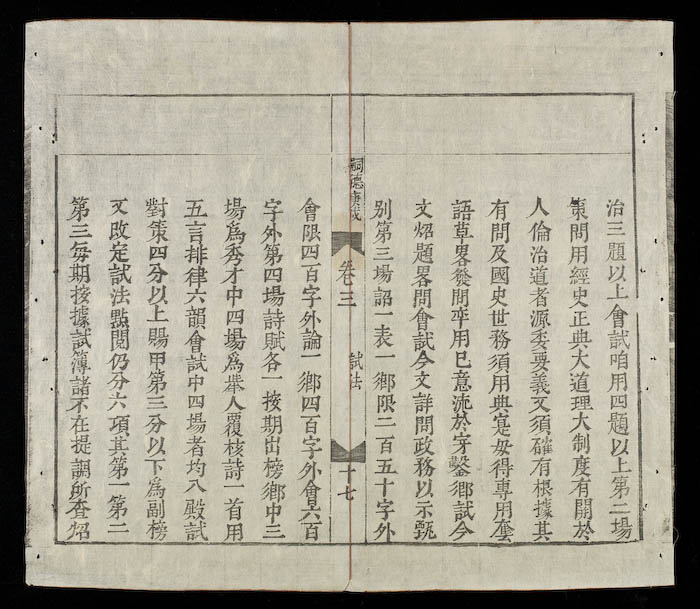 治三題以上會試咱用四題以上第二場
策問用經史正典大道理大制度有關於
人倫治道者源委要義又須確有根據其
有問及國史世務須用典寔毋得專用套
語草畧發問率用已意流於穿鑿鄉試今
文炤題畧問會試今文詳問政務以示甄
别第三場詔一表一鄉限二百五十字外
嗣德庚戌
卷三
試法
十七
會限四百字外論一鄉四百字外會六百
字外第四場詩賦各一按期出榜鄉中三
場爲秀才中四場爲舉人覆核詩一首用
五言排律六韻會試中四場者均入殿試
對策四分以上賜甲第三分以下爲副榜
又改定試法點閱仍分六項其第一第二
第三每期按據試簿諸不在提調所查炤